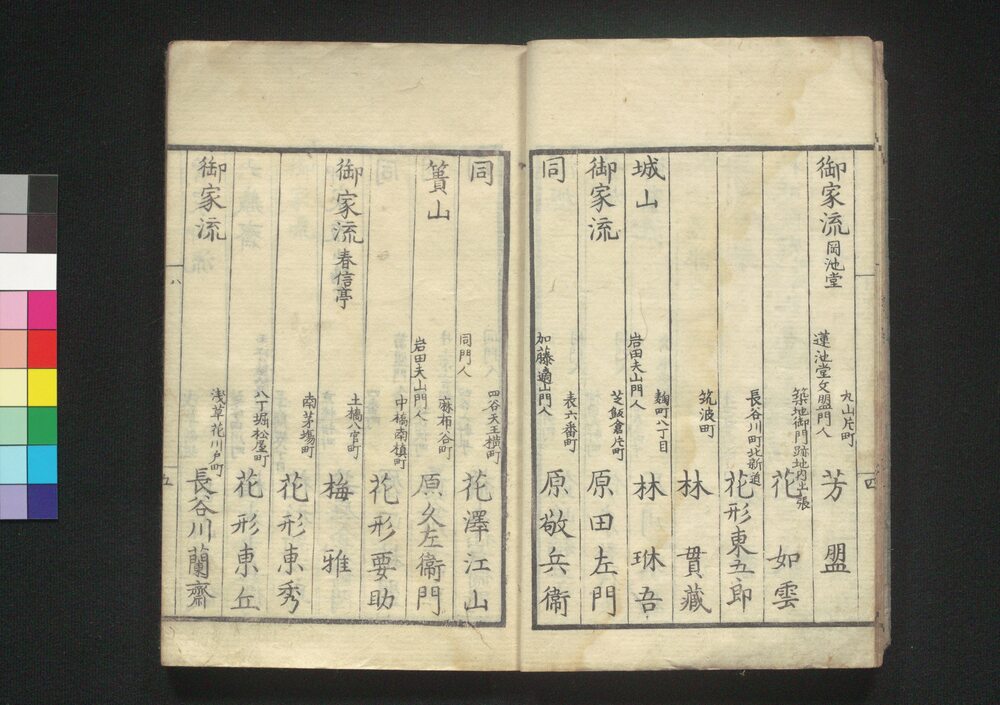 御家流 岡池堂 蓮池堂文盟門人 丸山片町 芳盟
築地御門跡地内 花如雲
長谷川町北新道 花形東五郎
筑波町 林貫藏
城山 岩田夫山門人 麹町八丁目 林琳吾
御家流 芝飯倉片町 原田左門
同 加藤適山門人 表六番町 原敬兵衞
四
同 同門人 四谷天王横町 花澤江山
簣山 岩田夫山門人 麻布谷町 原久左衞門
中橋南槙町 花形要助
御家流 春信亭 土橋八官町 梅雅
南茅場町 花形東秀
八丁堀松屋町 花形東丘
御家流 浅草花川戸町 長谷川蘭齋
八
五